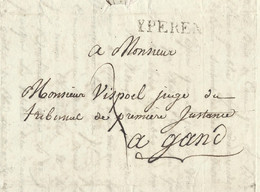 YPEREN
a Monsieur
Monsieur Vispoel juge du
tribunal de premiere Instance
a gand